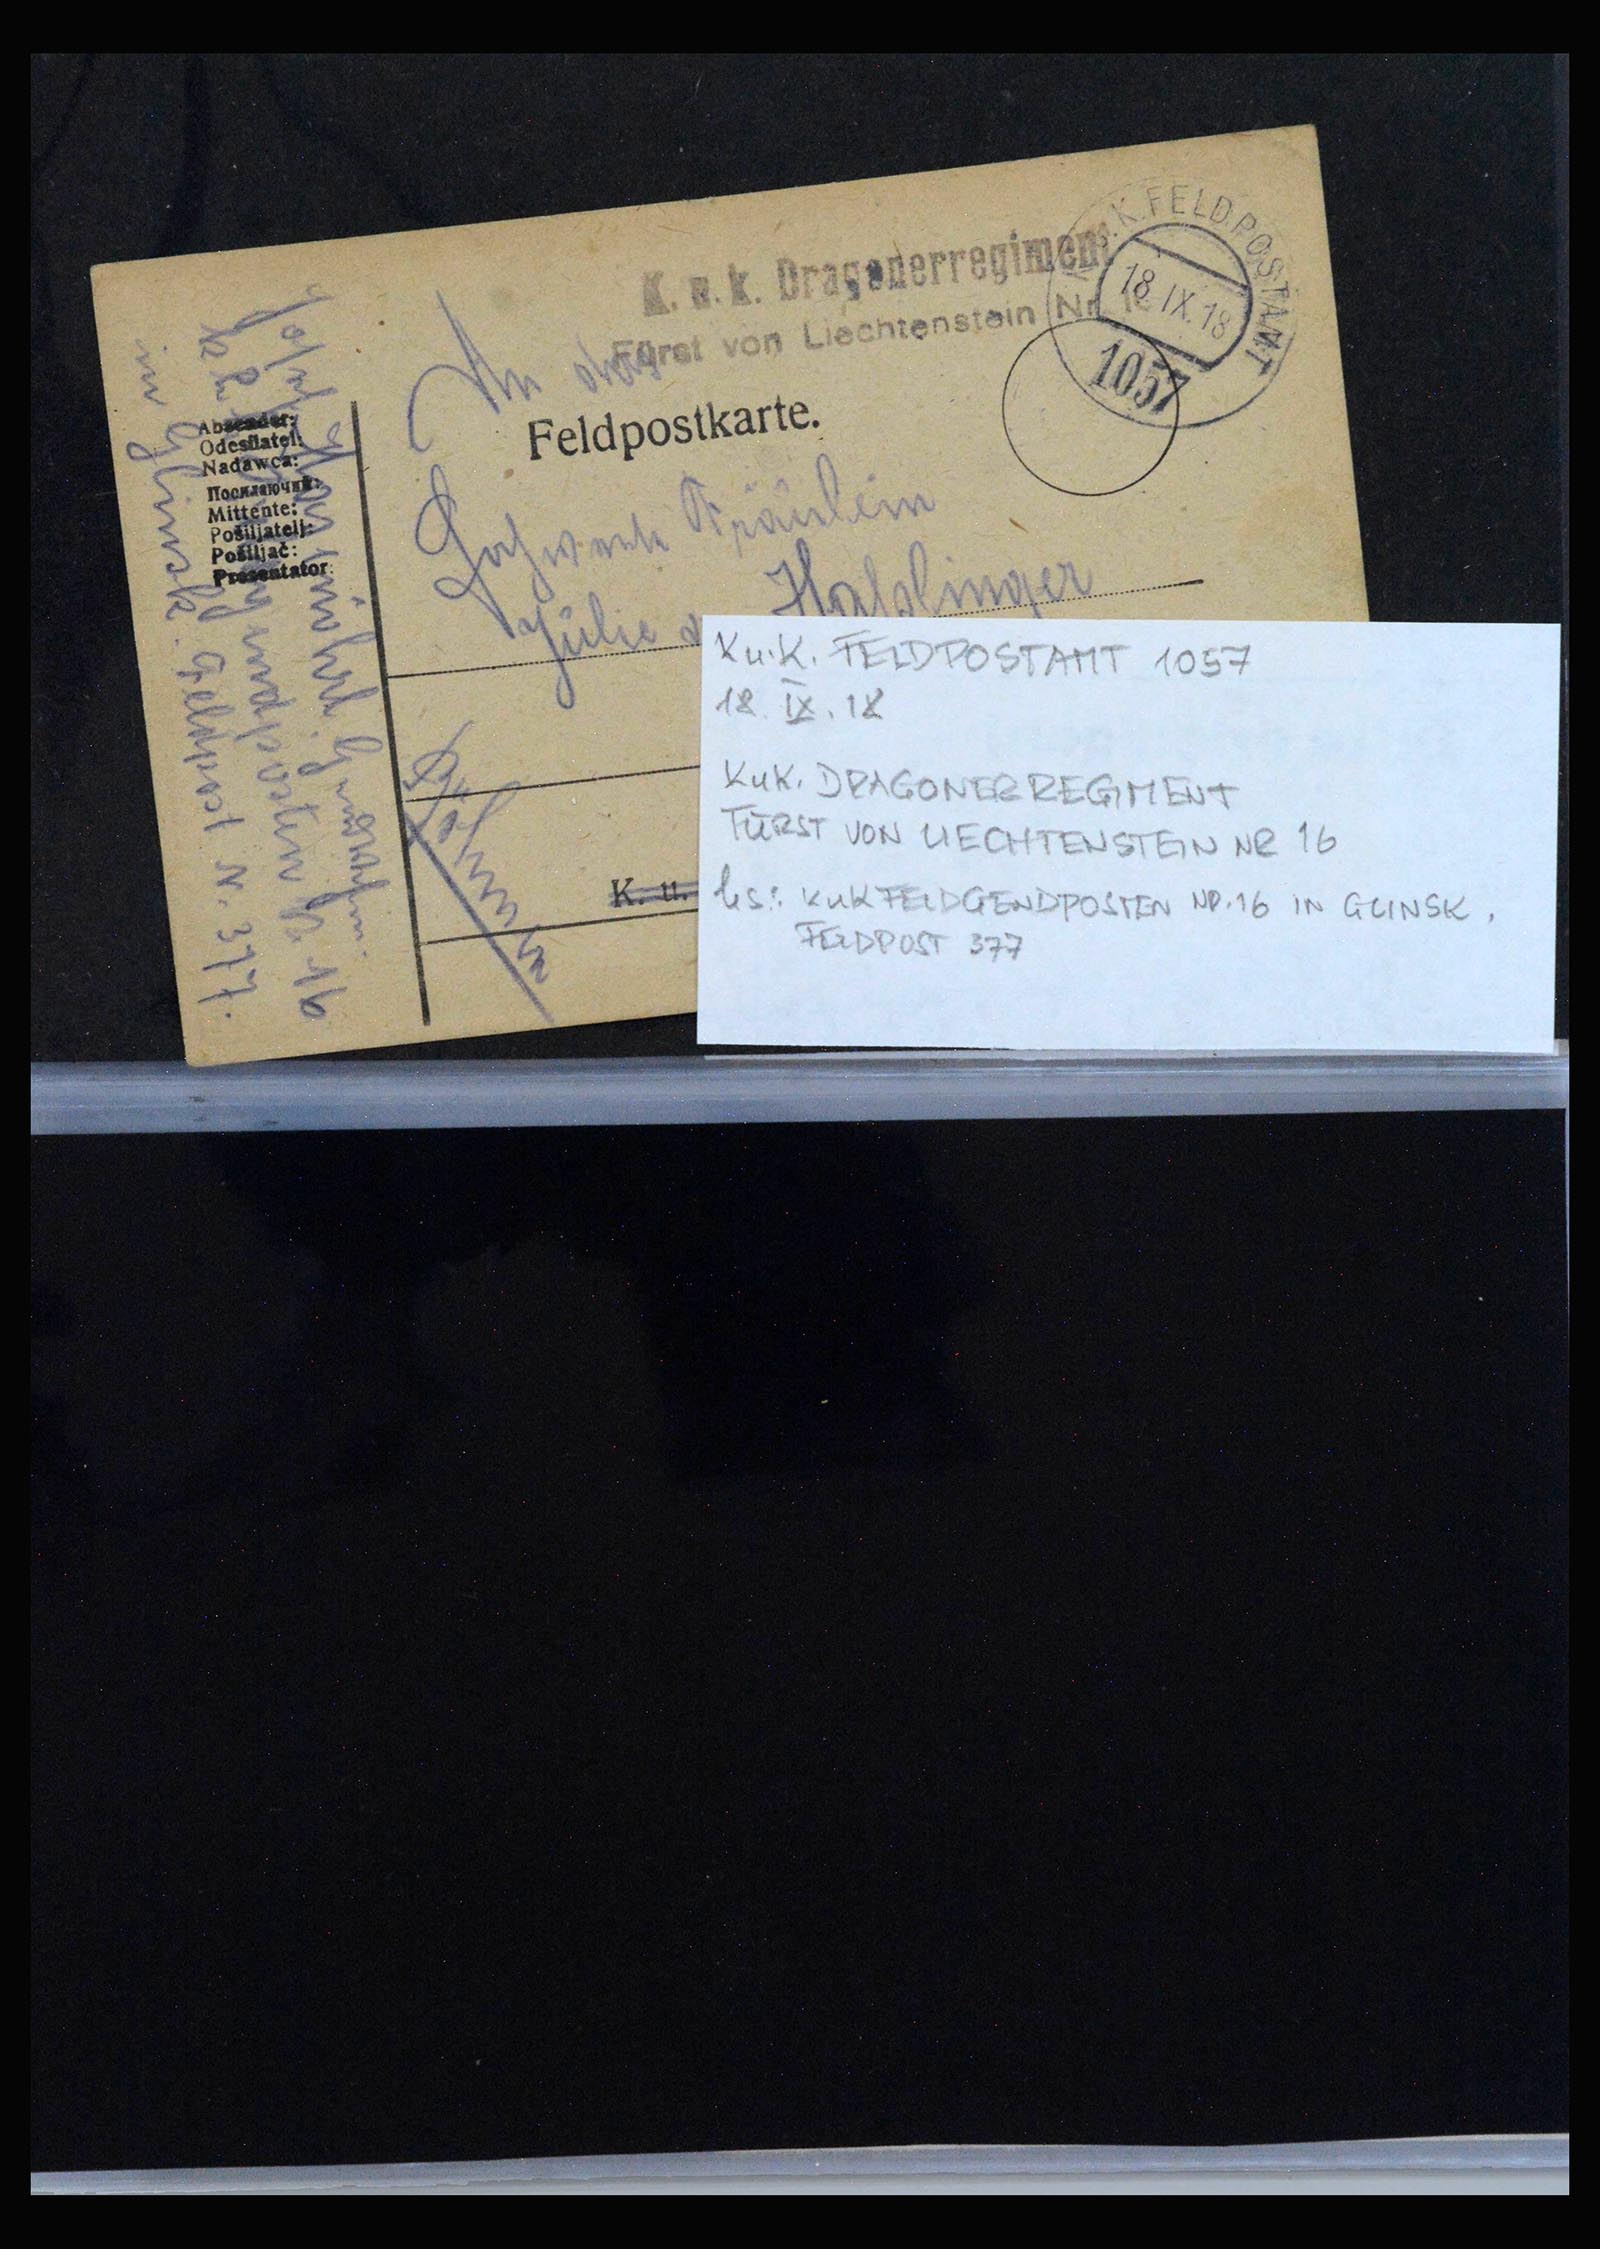 K. u. k. Dragonerregiment
Fürst von Liechtenstein Nr. 16
K. u. K. FELDPOSTAMT
18. IX. 18
1057
An das
Feldpostkarte.
Absender:
Odesílatel:
Nadawca:
Посилаючий:
Mittente:
Pošiljatelj:
Pošiljač:
Presentator:
Fräulein
Julie
K. u.
in Glinsk. Feldpost N. 377.
K u. K. FELDPOSTAMT 1057
18. IX. 18
KuK. DRAGONERREGIMENT
FÜRST VON LIECHTENSTEIN NR 16
hs: KuK FELDGENDPOSTEN NR. 16 IN GLINSK,
FELDPOST 377